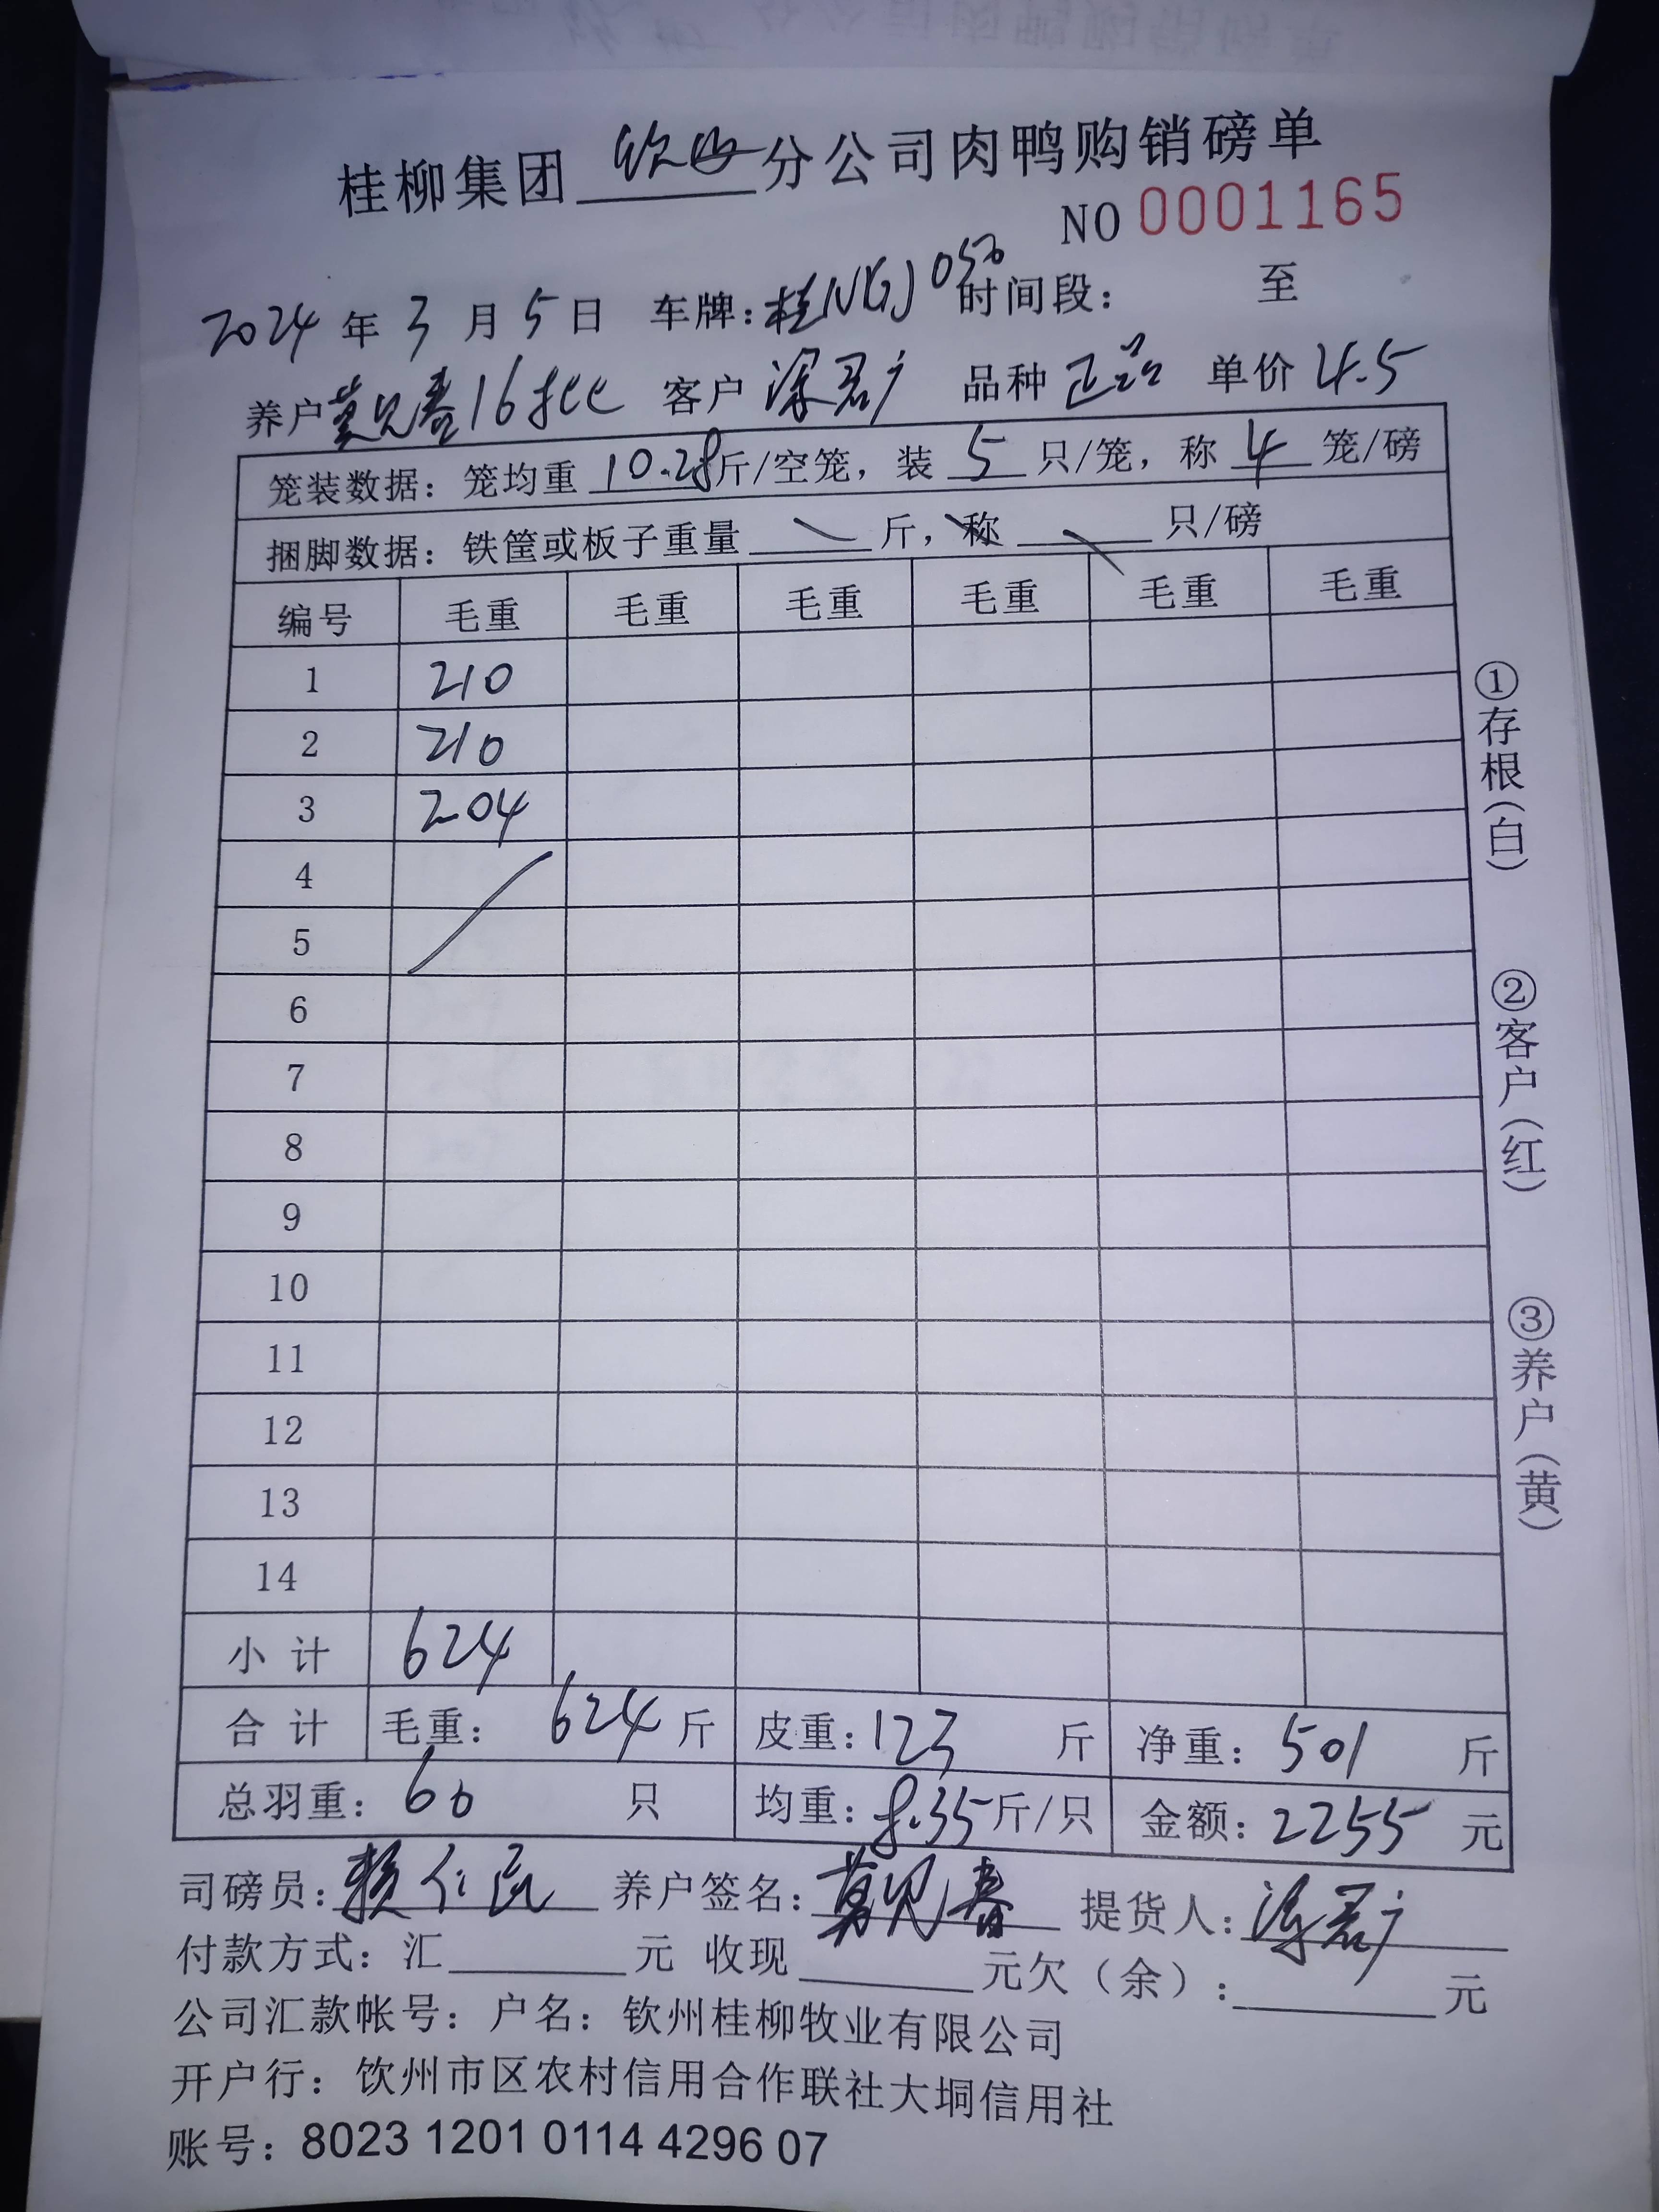 桂柳集团 钦州 分公司肉鸭购销磅单
NO 0001165
2024 年 3 月 5 日 车牌: 桂N 时间段: 至
养户 莫见春16批 客户 深君广 品种 正品 单价 4.5
笼装数据: 笼均重 10.28 斤/空笼, 装 5 只/笼, 称 4 笼/磅
捆脚数据: 铁筐或板子重量 斤, 称 只/磅
编号 毛重 毛重 毛重 毛重 毛重 毛重
1 210
2 210
3 204
4
5
6
7
8
9
10
11
12
13
14
小计 624
合计 毛重: 624 斤 皮重: 123 斤 净重: 501 斤
总羽重: 60 只 均重: 8.35 斤/只 金额: 2255 元
司磅员: 赖仁民 养户签名: 莫见春 提货人:
付款方式: 汇 元 收现 元欠(余): 元
公司汇款帐号: 户名: 钦州桂柳牧业有限公司
开户行: 饮州市区农村信用合作联社大垌信用社
账号: 8023 1201 0114 4296 07
①存根(白)
②客户(红)
③养户(黄)